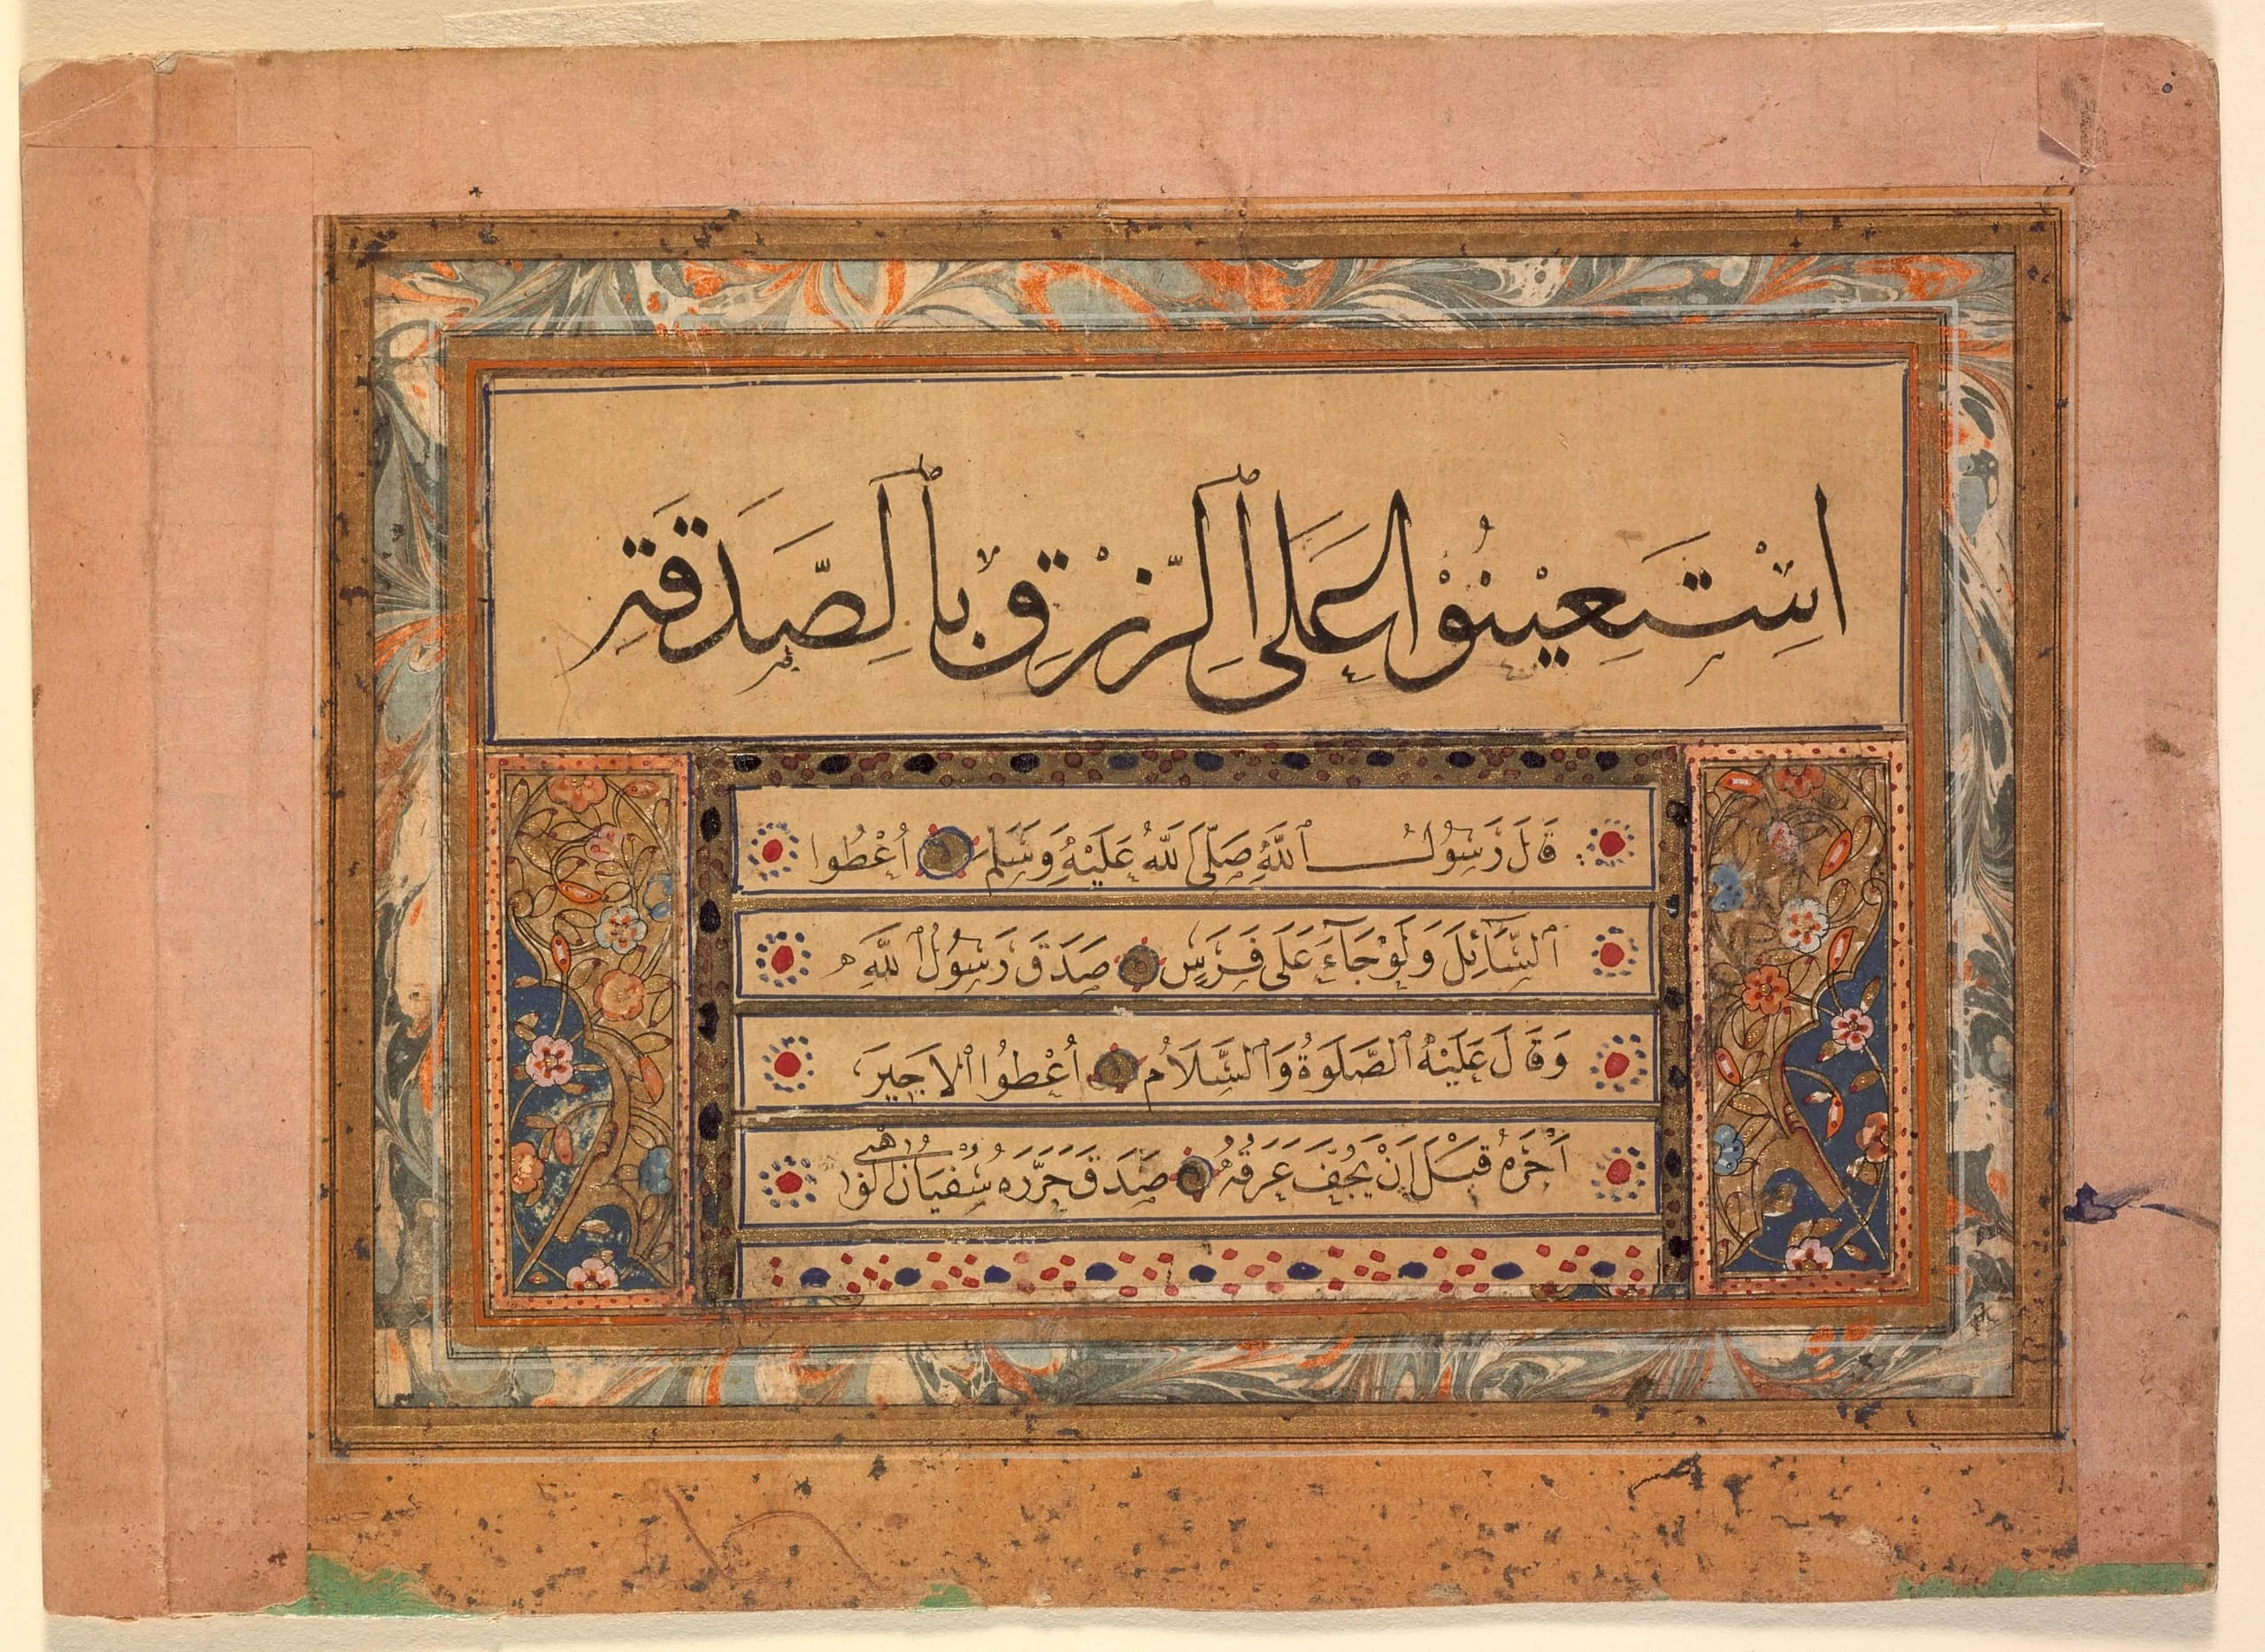 اِسْتَعِيْنُوْا عَلَى ٱلرِّزْقِ بِٱلصَّدَقَةِ
قَالَ رَسُولُ ٱللّٰهِ صَلَّى ٱللّٰهُ عَلَيْهِ وَسَلَّمَ اُعْطُوا
ٱلسَّائِلَ وَلَوْ جَآءَ عَلَى فَرَسٍ صَدَقَ رَسُولُ ٱللّٰهِ
وَقَالَ عَلَيْهِ ٱلصَّلَوةُ وَٱلسَّلَامُ اُعْطُوا ٱلاَجِيرَ
اَجْرَهُ قَبْلَ اَنْ يَجُفَّ عَرَقُهُ صَدَقَ حَرَّرَهُ سُفْيَانُ